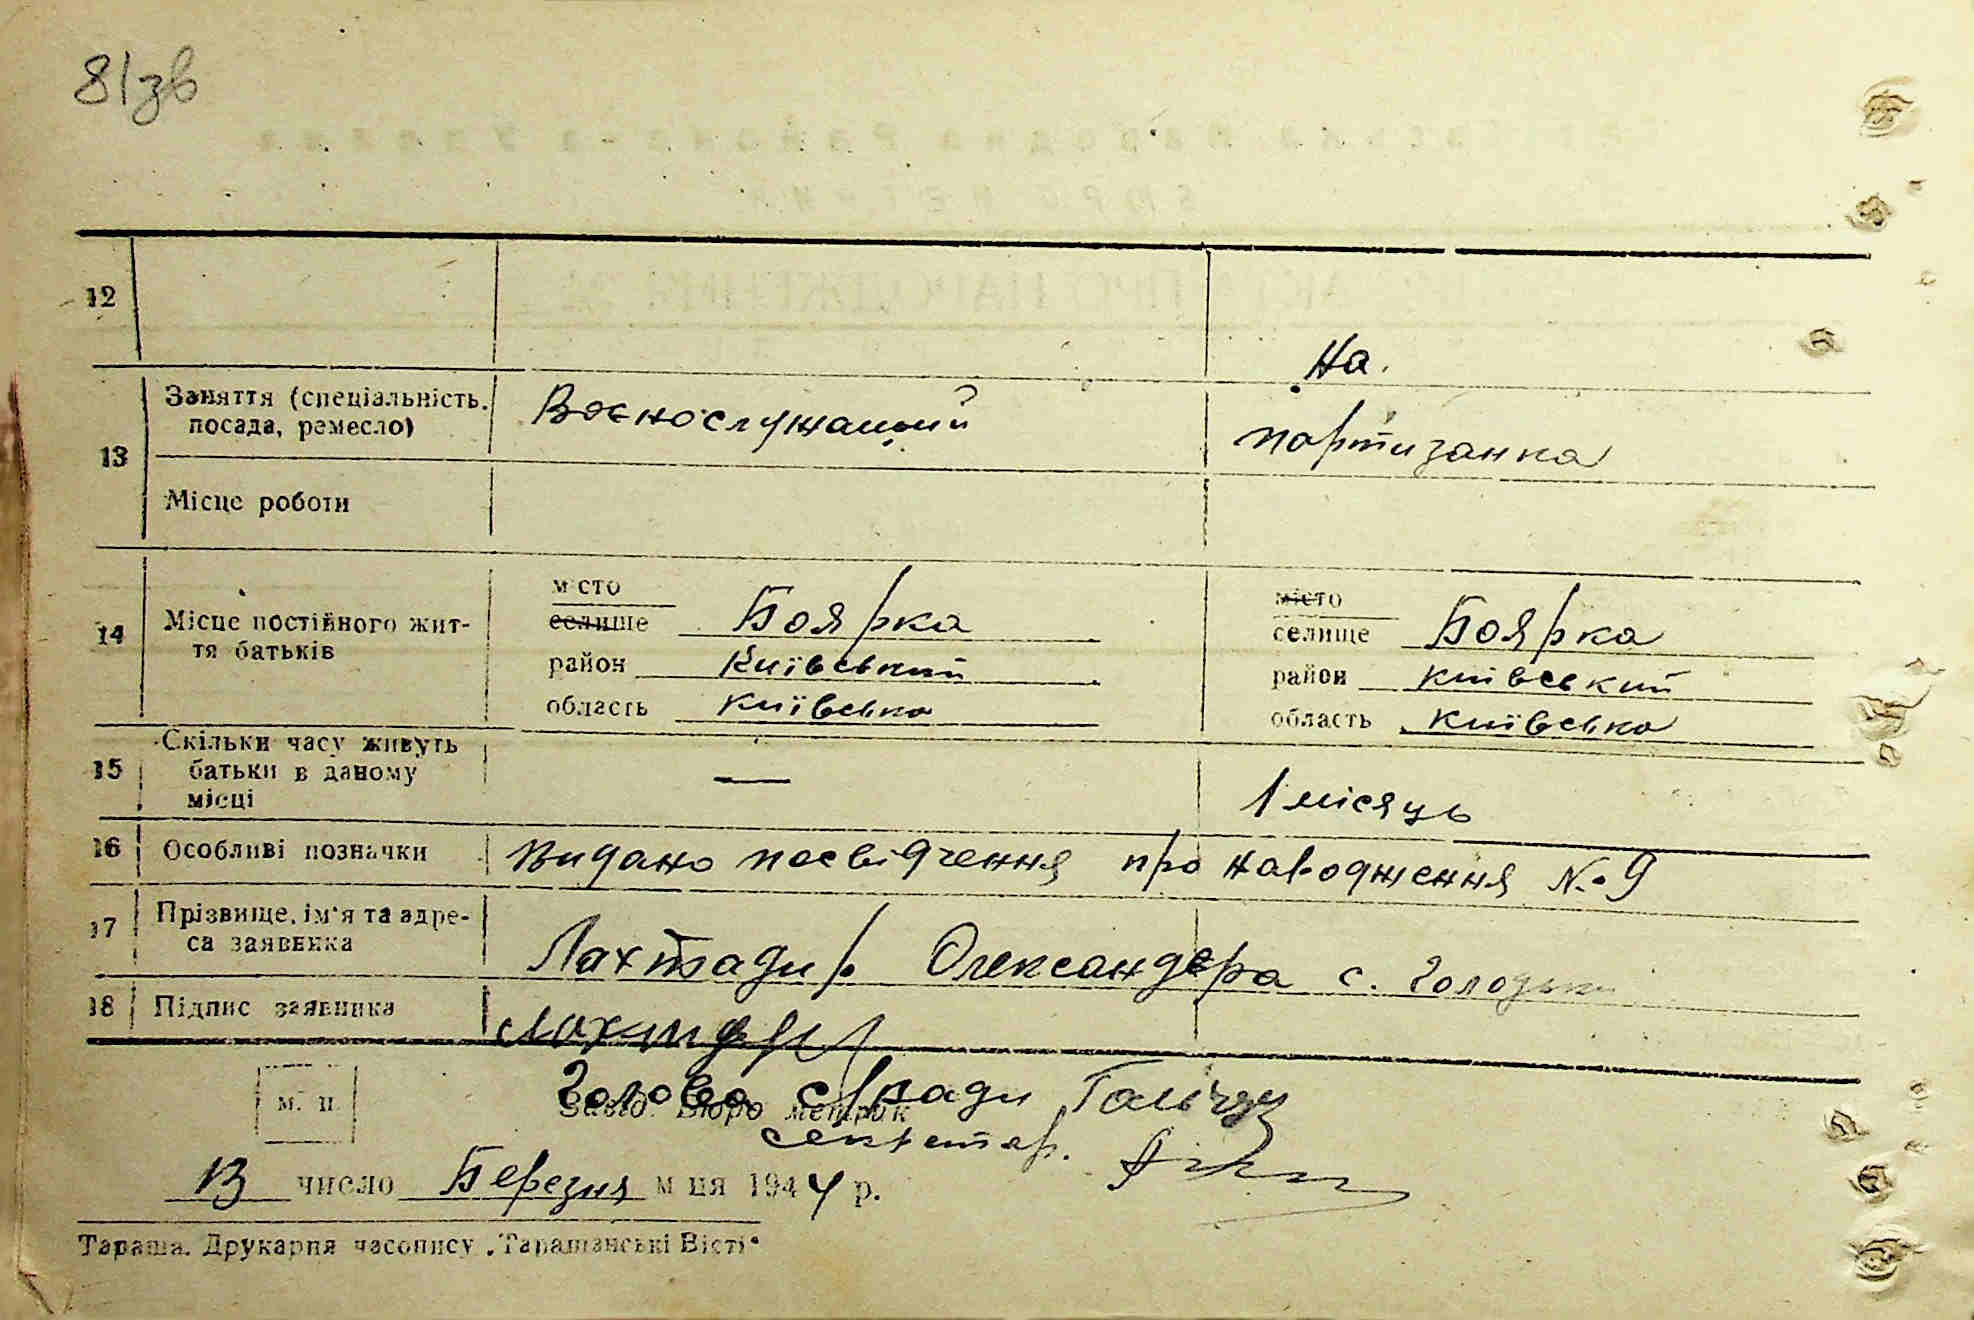 81зв
12
На.
13
Заняття (спеціальність, посада, ремесло)
Воєнослужащий
партизанка
Місце роботи
14
Місце постійного жит-
тя батьків
місто
селище Боярка
район Київський
область Київська
місто
селище Боярка
район Київський
область Київська
15
Скільки часу живуть
батьки в даному
місці
—
1 місяць
16 Особливі позначки Видано посвідчення про народження №9
17
Прізвище, ім'я та адре-
са заявника
Лахтадир Олександра с.
18 Підпис заявника
Голова с/ради
Завід. Бюро метрик
секретар.
м. п.
13 число Березня м ця 1944 р.
Тараща. Друкарня часопису „Таращанські Вісті“